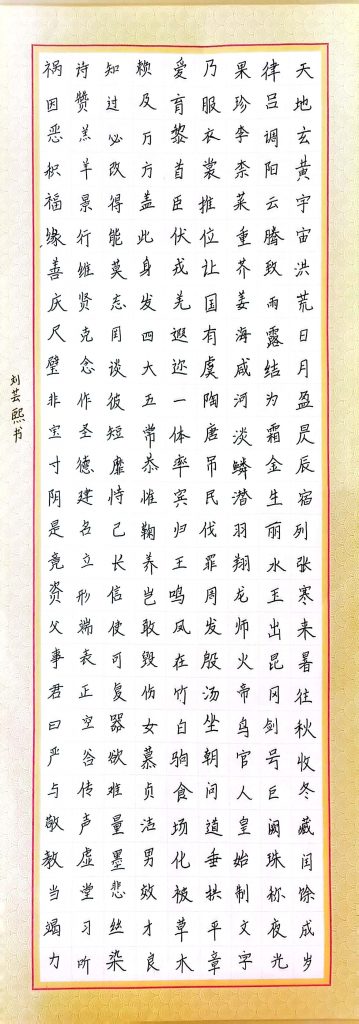 天地玄黄宇宙洪荒日月盈昃辰宿列张寒来暑往秋收冬藏闰馀成岁
律吕调阳云腾致雨露结为霜金生丽水玉出昆冈剑号巨阙珠称夜光
果珍李柰菜重芥姜海咸河淡鳞潜羽翔龙师火帝鸟官人皇始制文字
乃服衣裳推位让国有虞陶唐吊民伐罪周发殷汤坐朝问道垂拱平章
爱育黎首臣伏戎羌遐迩一体率宾归王鸣凤在竹白驹食场化被草木
赖及万方盖此身发四大五常恭惟鞠养岂敢毁伤女慕贞洁男效才良
知过必改得能莫忘罔谈彼短靡恃己长信使可复器欲难量墨悲丝染
诗赞羔羊景行维贤克念作圣德建名立形端表正空谷传声虚堂习听
祸因恶积福缘善庆尺璧非宝寸阴是竞资父事君曰严与敬教当竭力
刘芸熙书